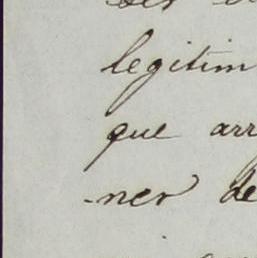 legitim
que arr
-ner de